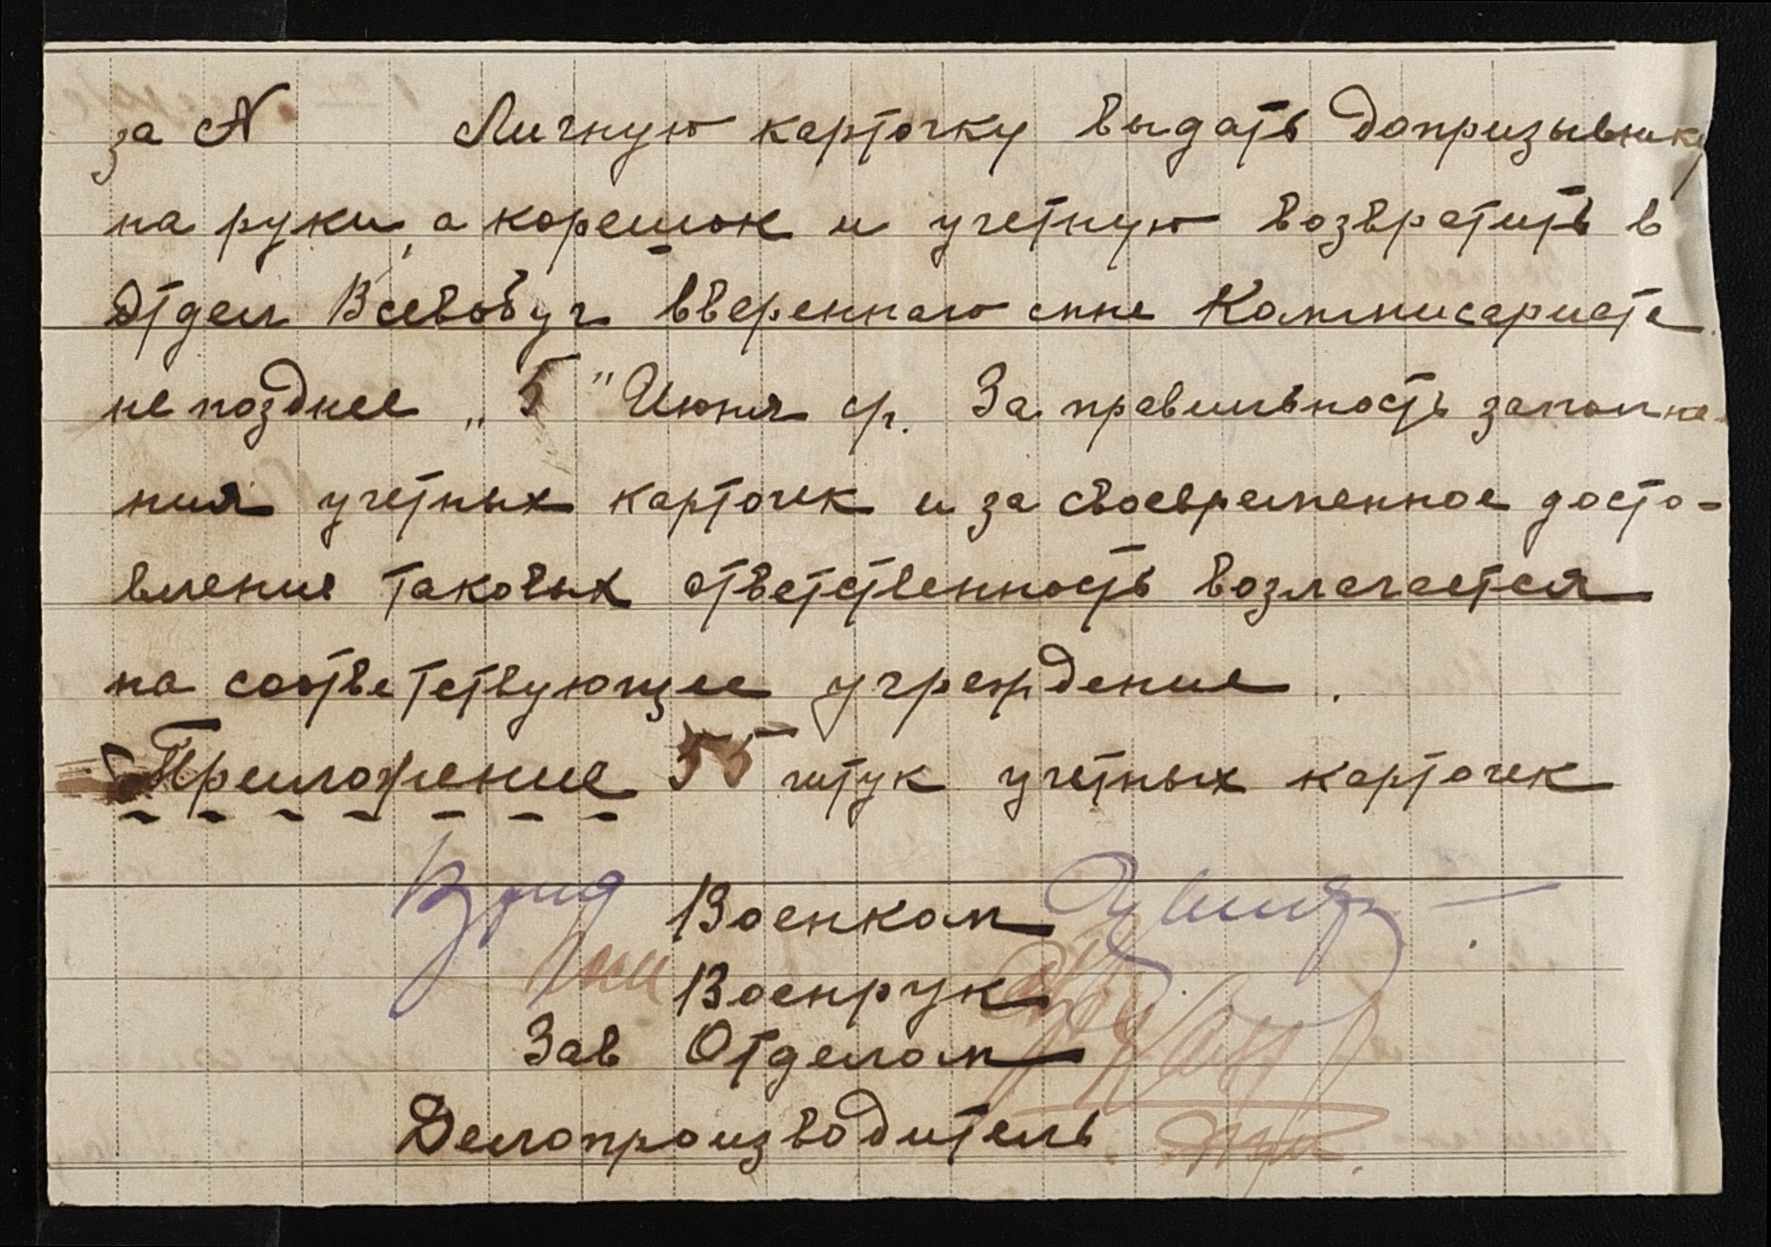 за № Личную карточку выдать допризывнику
на руки, а корешок и учетную возвратить в
Отдел Всевобуч вверенного мне Коммисариата
не позднее „5" Июня с/г. За правильность заполне-
ния учетных карточек и за своевременное доста-
вление таковых ответственность возлагается
на соответствующее учреждение.
Приложение 55 штук учетных карточек
Врид Военком
Военрук
Зав Отделом
Делопроизводитель